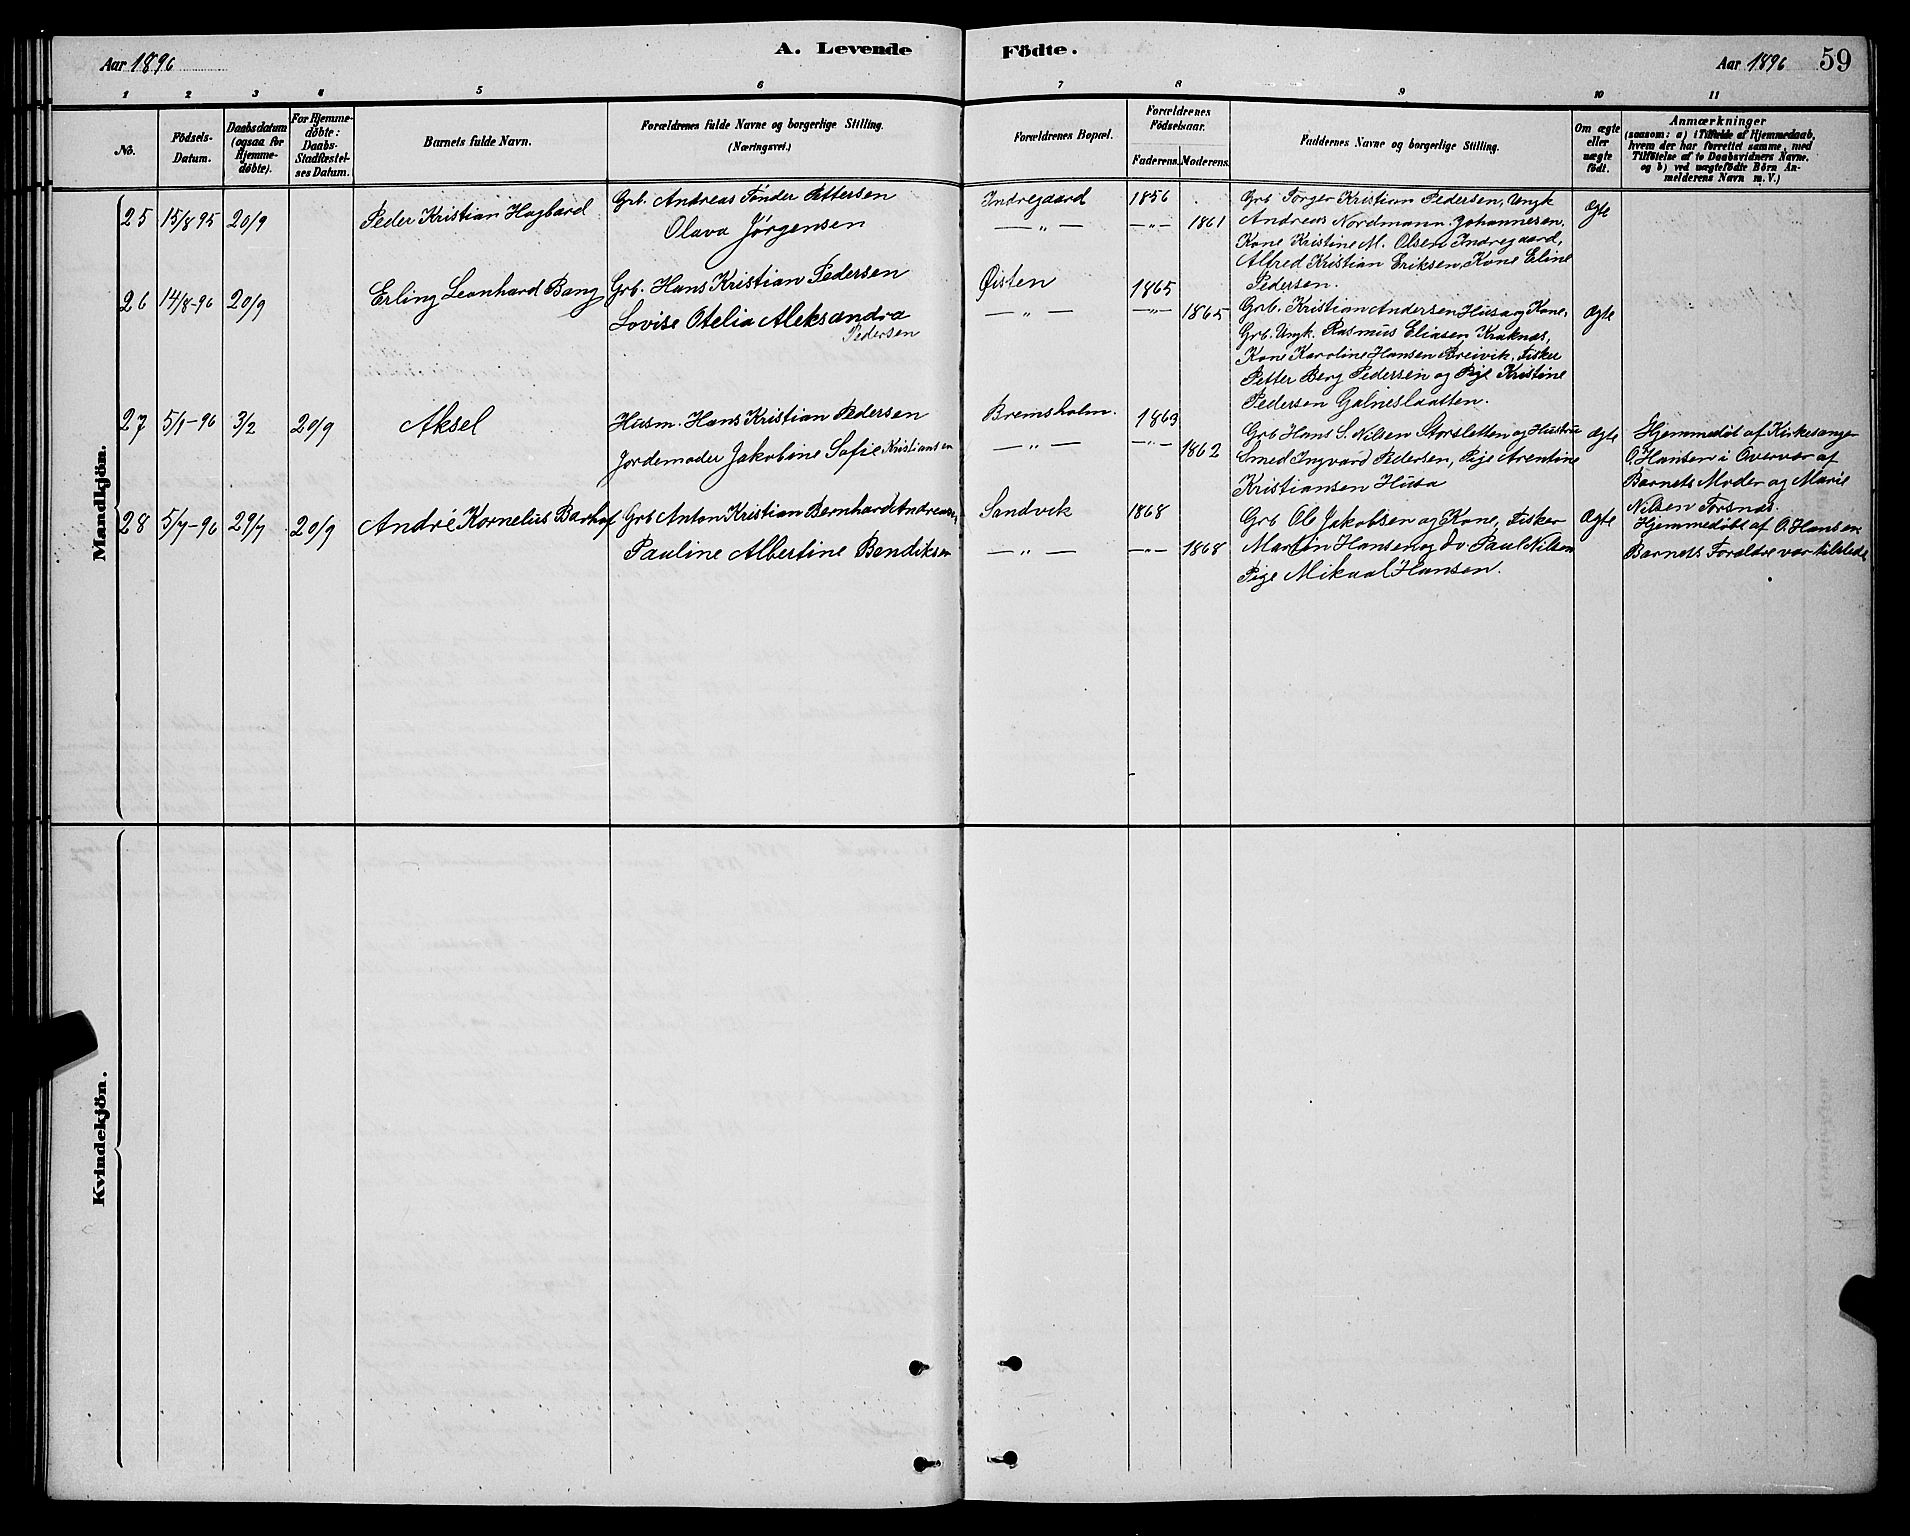 Aar 1896
A. Levende Födte.
Aar 1896 59
1 2 3 4 5 6 7 8 9 10 11
No.
Födsels-Datum.
Daabsdatum (ogsaa for Hjemme-döbte).
For Hjemme-döbte: Daabs-Stadfæstel-ses Datum.
Barnets fulde Navn.
Forældrenes fulde Navne og borgerlige Stilling.
(Næringsvei.)
Forældrenes Bopæl.
Forældrenes Födselsaar.
Faderens. Moderens.
Faddernes Navne og borgerlige Stilling.
Om ægte eller uægte födt.
Anmærkninger
(saasom: a) i Tilfælde af Hjemmedaab,
hvem der har forrettet samme, med
Tilföielse af to Daabsvidners Navne.
og b) ved uægtefödte Börn An-
melderens Navn m. V.)
Mandkjön.
25 15/8 95 20/9 Peder Kristian Hagbard
Grb. Andreas Tønder Pettersen
Olava Jørgensen
Indregaard 1856
—„— —„— 1861
Grb Torger Kristian Pedersen, Ungk
Andreas Nordmann Johannesen,
Kone Kristine M. Olsen Indregaard,
Alfred Kristian Eriksen, Kone Eline
Pedersen.
Ægte
26 14/8-96 20/9 Erling Leonhard Bang
Grb. Hans Kristian Pedersen
Lovise Otelia Aleksandra
Pedersen
Øisten 1865
—„— —„— 1865
Grb. Kristian Andersen Husa og Kone,
Grb. Ungk. Rasmus Eliasen Kraknas,
Kone Karoline Hansen Breivik, Fisker
Petter Berg Pedersen og Pige Kristine
Pedersen Galneslaatten.
Ægte
27 5/1-96 3/2 20/9 Aksel
Husm. Hans Kristian Pedersen
Jordemoder Jakobine Sofie Kristiansen
Bremsholm. 1869
—„— —„— 1862
Grb Hans S. Nilsen Storsletten og Hustru
Smed Ingvard Pedersen, Pige Arentine
Kristiansen Husa
Ægte
Hjemmedøbt af Kirkesanger
O. Hansen i Overvær af
Barnets Moder og Marie
Nilsen Forsnas.
28 5/7-96 29/7 20/9 André Kornelius Barhof
Grb Anton Kristian Bernhard Andreasen,
Pauline Albertine Bendiksen
Sandvik 1868
—„— —„— 1868
Grb Ole Jakobsen og Kone, Fisker
Martin Hansen og do Paul Nilsen
Pige Mikaal Hansen.
Ægte
Hjemmedøbt af O. Hansen
Barnets Forældre var tilstede
Kvindekjön.